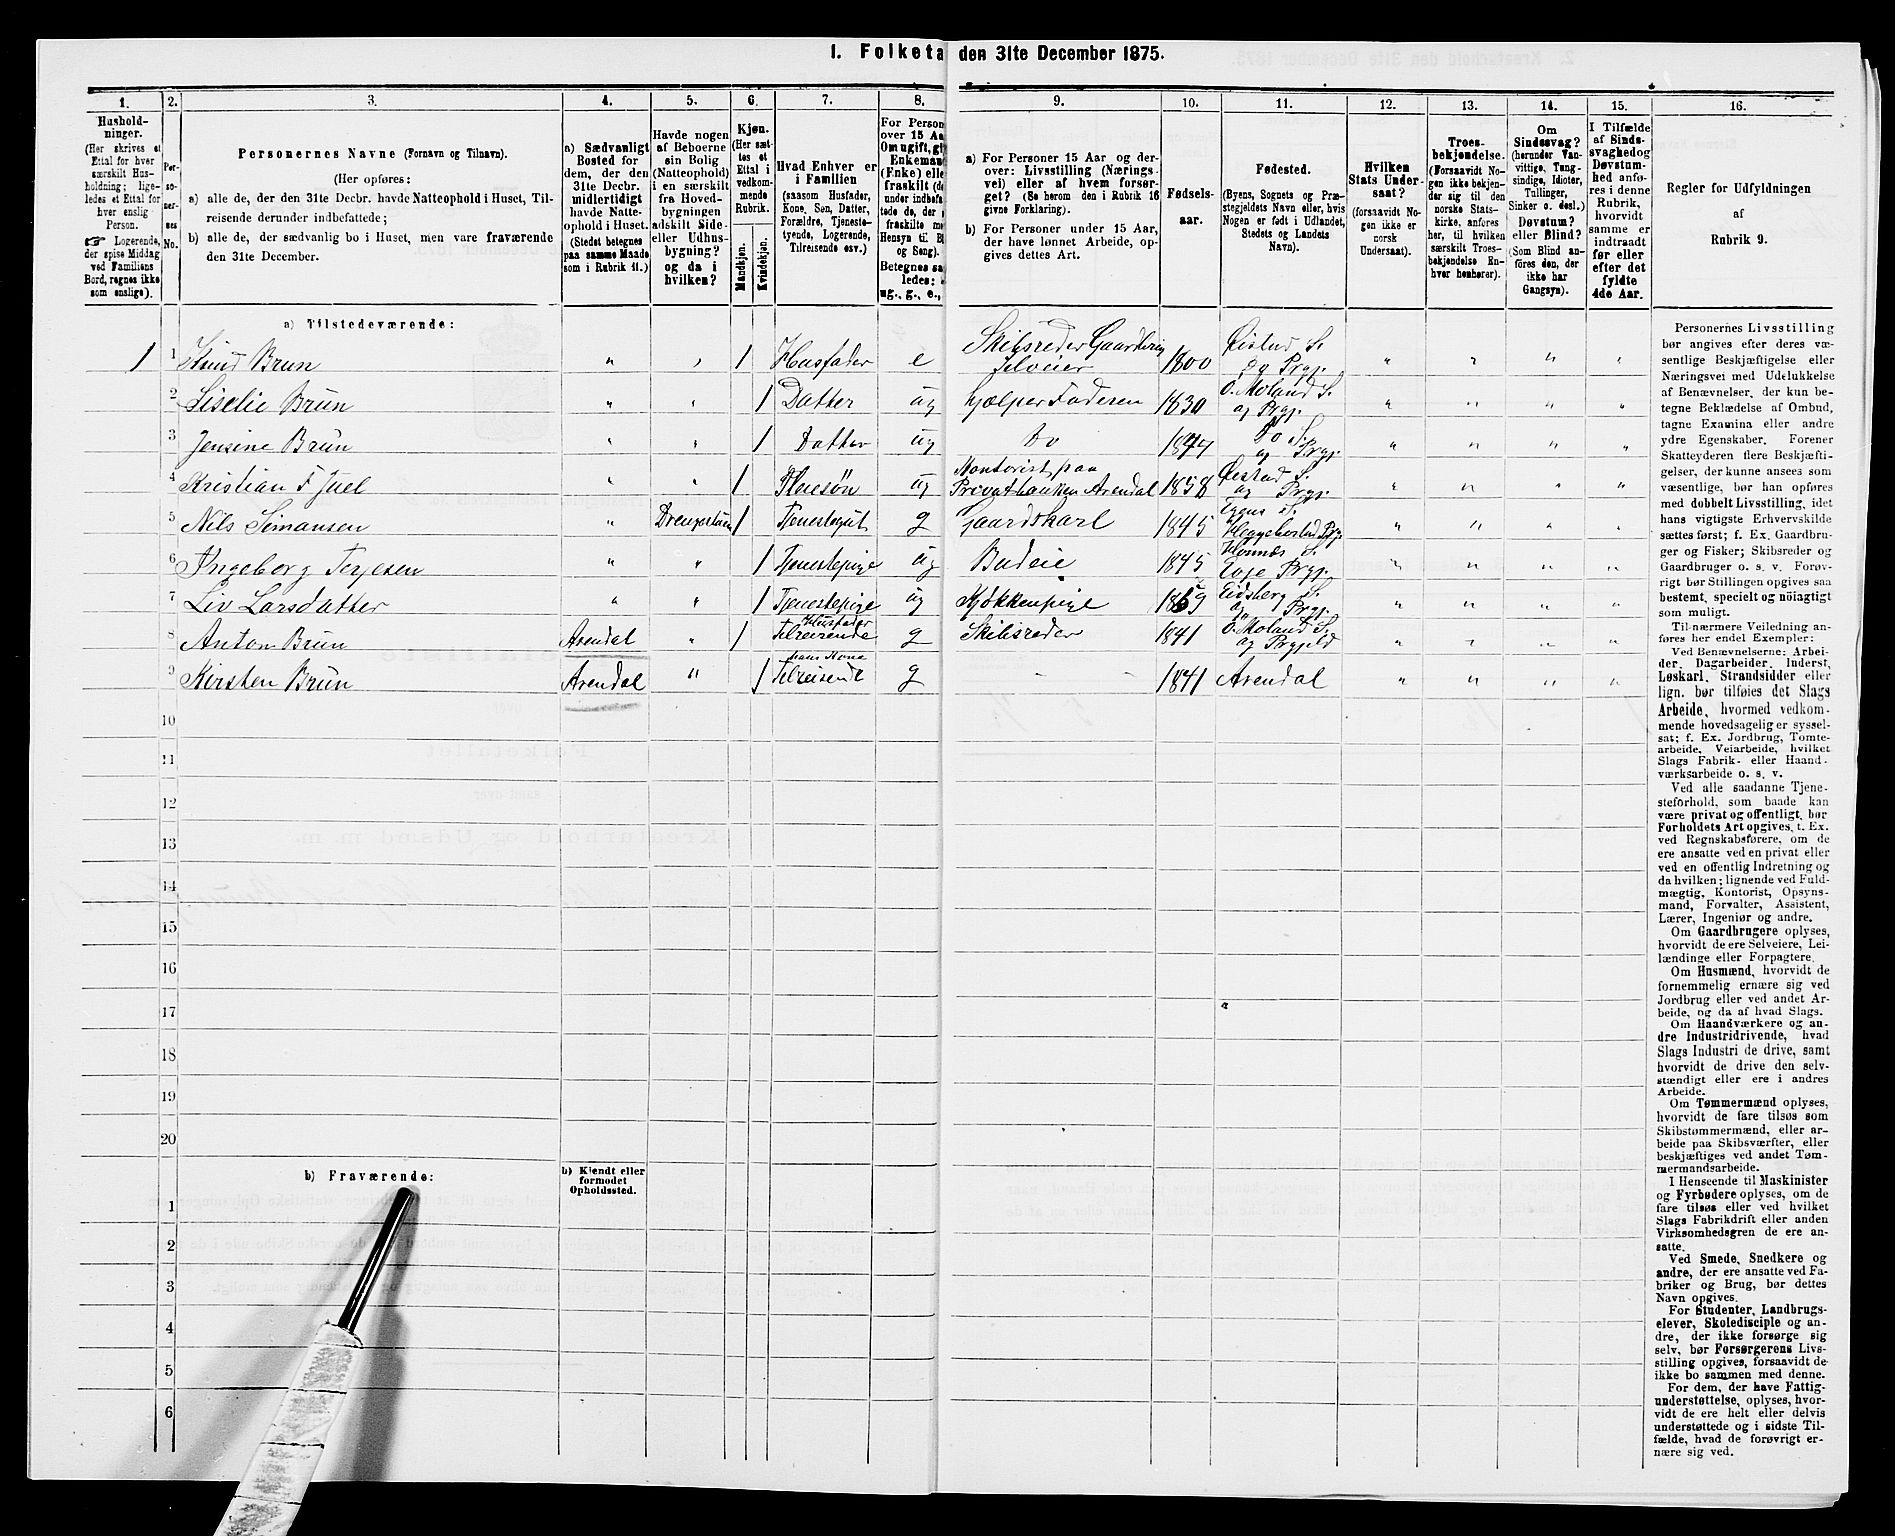 1. Folketa den 31te December 1875.
1. 2. 3. 4. 5. 6. 7. 8. 9. 10. 11. 12. 13. 14. 15. 16.
Hushold-
ninger.
(Her skrives et
Ettal for hver
særskilt Hus-
holdning; lige-
ledes et Ettal for
hver enslig
Person.
☞ Logerende,
der spise Middag
ved Familiens
Bord, regnes ikke
som enslige).
Per-
so-
ner-
nes
No.
Personernes Navne (Fornavn og Tilnavn).
(Her opføres:
a) alle de, der den 31te Decbr. havde Natteophold i Huset, Til-
reisende derunder indbefattede;
b) alle de, der sædvanlig bo i Huset, men vare fraværende
den 31te December.
a) Sædvanligt
Bosted for
dem, der den
31te Decbr.
midlertidigt
havde Natte-
ophold i Huset.
(Stedet betegnes
paa samme Maade
som i Rubrik 11.)
Havde nogen
af Beboerne
sin Bolig
(Natteophold)
i en særskilt
fra Hoved-
bygningen
adskilt Side-
eller Udhus-
bygning?
og da i
hvilken?
Kjøn.
(Her sæt-
tes et
Ettal i
vedkom-
mende
Rubrik.
Mandkjøn.
Kvindekjøn.
Hvad Enhver er
i Familien
(saasom Husfader,
Kone, Søn, Datter,
Forældre, Tjeneste-
tyende, Logerende,
Tilreisende osv.)
For Person
over 15 Aa
Om ugift, gi
Enkemand
(Enke) elle
fraskilt (de
under indbefa
tede de, der
fraskilte me
Hensyn til B
og Seng).
Betegnes saa
ledes:
ug., g., e.,
a) For Personer 15 Aar og der-
over: Livsstilling (Nærings-
vei) eller af hvem forsør-
get? (Se herom den i Rubrik 16
givne Forklaring).
b) For Personer under 15 Aar,
der have lønnet Arbeide, op-
gives dettes Art.
Fødsels-
aar.
Fødested.
(Byens, Sognets og Præ-
stegjeldets Navn eller, hvis
Nogen er født i Udlandet,
Stedets og Landets
Navn).
Hvilken
Stats Under-
saat?
(forsaavidt No-
gen ikke er
norsk
Undersaat).
Troes-
bekjendelse.
(Forsaavidt No-
gen ikke bekjen-
der sig til den
norske Stats-
kirke, anføres
her, til hvilken
særskilt Troes-
bekjendelse En-
hver henhører).
Om
Sindssvag?
(herunder Van-
vittige, Tung-
sindige, Idioter,
Tullinger,
Sinker o. desl.)
Døvstum?
eller Blind?
(Som Blind an-
føres den, der
ikke har
Gangsyn).
I Tilfælde
af Sinds-
svaghed og
Døvstum-
hed anfø-
res i denne
Rubrik,
hvorvidt
samme er
indtraadt
før eller
efter det
fyldte
4de Aar.
Regler for Udfyldningen
af
Rubrik 9.
a) Tilstedeværende:
1 1 Knud Brun " " 1 Husfader e Skibsreder Gaardbrug Selveier 1800 Øistad S. og Prgj. " " " "
2 Liselie Brun " " 1 Datter ug hjælper Faderen 1830 Ø. Moland S. og Prgj. " " " "
3 Jensine Brun " " 1 Datter ug Do 1847 Do S. og Prgj. " " " "
4 Kristian F Juel " 1 Pleiesøn ug Kontorist paa Privatbanken Arendal 1858 Øiestad S. og Prgj. " " " "
5 Nils Simonsen " Drengestuen 1 Tjenestegut g Gaardskarl 1845 S. Prgj. " " " "
6 Ingeborg Terjesen " " 1 Tjenestepige ug Budeie 1845 Hornnes S. Evje Prgj. " " " "
7 Liv Larsdatter " " 1 Tjenestepige ug Kjøkkenpige 1859 Eidsberg S. og Prgj. " " " "
8 Anton Brun Arendal " 1 Husfader Tilreisende g Skibsreder 1841 Ø. Moland S. og Prgjeld " " " "
9 Kirsten Brun Arendal " 1 hans Kone Tilreisende g - - 1841 Arendal " " " "
10
11
12
13
14
15
16
17
18
19
20
b) Fraværende:
b) Kjendt eller
formodet
Opholdssted.
1
2
3
4
5
6
Personernes Livsstilling
bør angives efter deres væ-
sentlige Beskjæftigelse eller
Næringsvei med Udelukkelse
af Benævnelser, der kun be-
tegne Beklædelse af Ombud,
tagne Examina eller andre
ydre Egenskaber. Forener
Skatteyderen flere Beskjæfti-
gelser, der kunne ansees som
væsentlige, bør han opføres
med dobbelt Livsstilling, idet
hans vigtigste Erhvervskilde
sættes først; f. Ex. Gaardbru-
ger og Fisker; Skibsreder og
Gaardbruger o. s. v. Forøv-
rigt bør Stillingen opgives saa
bestemt, specielt og nøiagtigt
som muligt.
Til nærmere Veiledning an-
føres her endel Exempler:
Ved Benævnelserne: Arbei-
der, Dagarbeider, Inderst,
Løskarl, Strandsidder eller
lign. bør tilføies det Slags
Arbeide, hvormed vedkom-
mende hovedsagelig er syssel-
sat; f. Ex. Jordbrug, Tomte-
arbeide, Veiarbeide, hvilket
Slags Fabrik- eller Haand-
værksarbeide o. s. v.
Ved alle saadanne Tjene-
steforhold, som baade kan
være privat og offentligt, bør
Forholdets Art opgives, t. Ex.
ved Regnskabsførere, om de
ere ansatte ved en privat eller
ved en offentlig Indretning og
da hvilken; lignende ved Fuld-
mægtig, Kontorist, Opsyns-
mand, Forvalter, Assistent,
Lærer, Ingeniør og andre.
Om Gaardbrugere oplyses,
hvorvidt de ere Selveiere, Lei-
lændinge eller Forpagtere.
Om Husmænd, hvorvidt de
fornemmelig ernære sig ved
Jordbrug eller ved andet Ar-
beide, og da af hvad Slags.
Om Haandværkere og an-
dre Industridrivende, hvad
Slags Industri de drive, samt
hvorvidt de drive den selv-
stændigt eller ere i andres
Arbeide.
Om Tømmermænd oplyses,
hvorvidt de fare tilsøs som
Skibstømmermænd, eller ar-
beide paa Skibsværfter, eller
beskjæftiges ved andet Tøm-
mermandsarbeide.
I Henseende til Maskinister
og Fyrbødere oplyses, om de
fare tilsøs eller ved hvilket
Slags Fabrikdrift eller anden
Virksomhedsgren de ere an-
satte.
Ved Smede, Snedkere og
andre, der ere ansatte ved Fa-
briker og Brug, bør dettes
Navn opgives.
For Studenter, Landbrugs-
elever, Skoledisciple og an-
dre, der ikke forsørge sig
selv, bør Forsørgerens Livs-
stilling opgives, forsaavidt de
ikke bo sammen med denne.
For dem, der have Fattig-
understøttelse, oplyses, hvor-
vidt de ere helt eller delvis
understøttede og i sidste Til-
fælde, hvad de forøvrigt er-
nære sig ved.